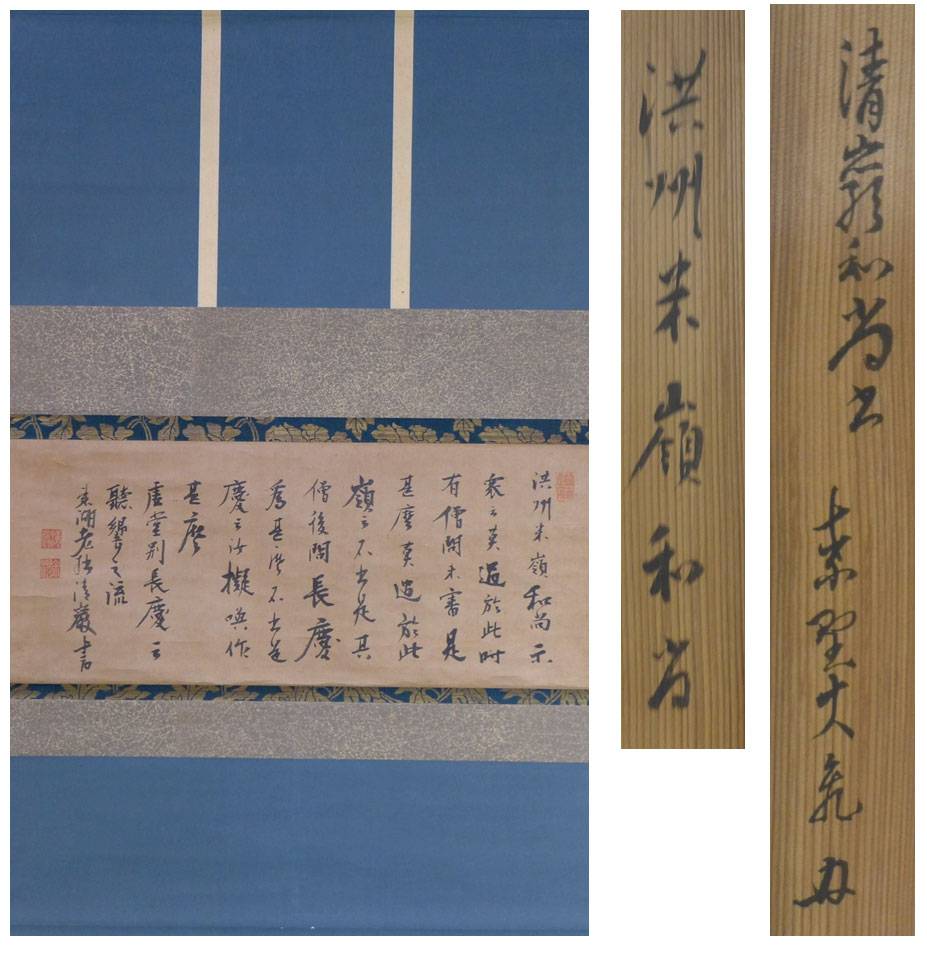 洪州米嶺和尚示
衆云莫過於此時
有僧問未審是
甚麼莫過於此
嶺云不出是其
僧後問長慶
爲甚麼不出是
慶云汝擬喚作
甚麼
虚堂別長慶云
聽響之流
東湖老拙清巖書
洪州米嶺和尚
清巖和尚書
紫野大亀